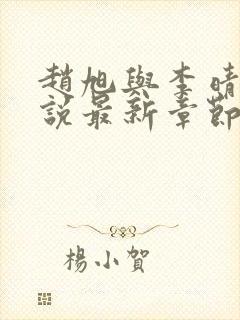 趙旭與李晴
說最新章節
楊小賀